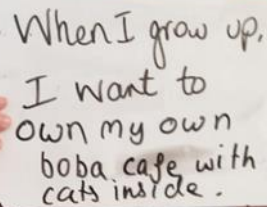 When I grow up,
I want to
own my own
boba cafe with
cats inside.